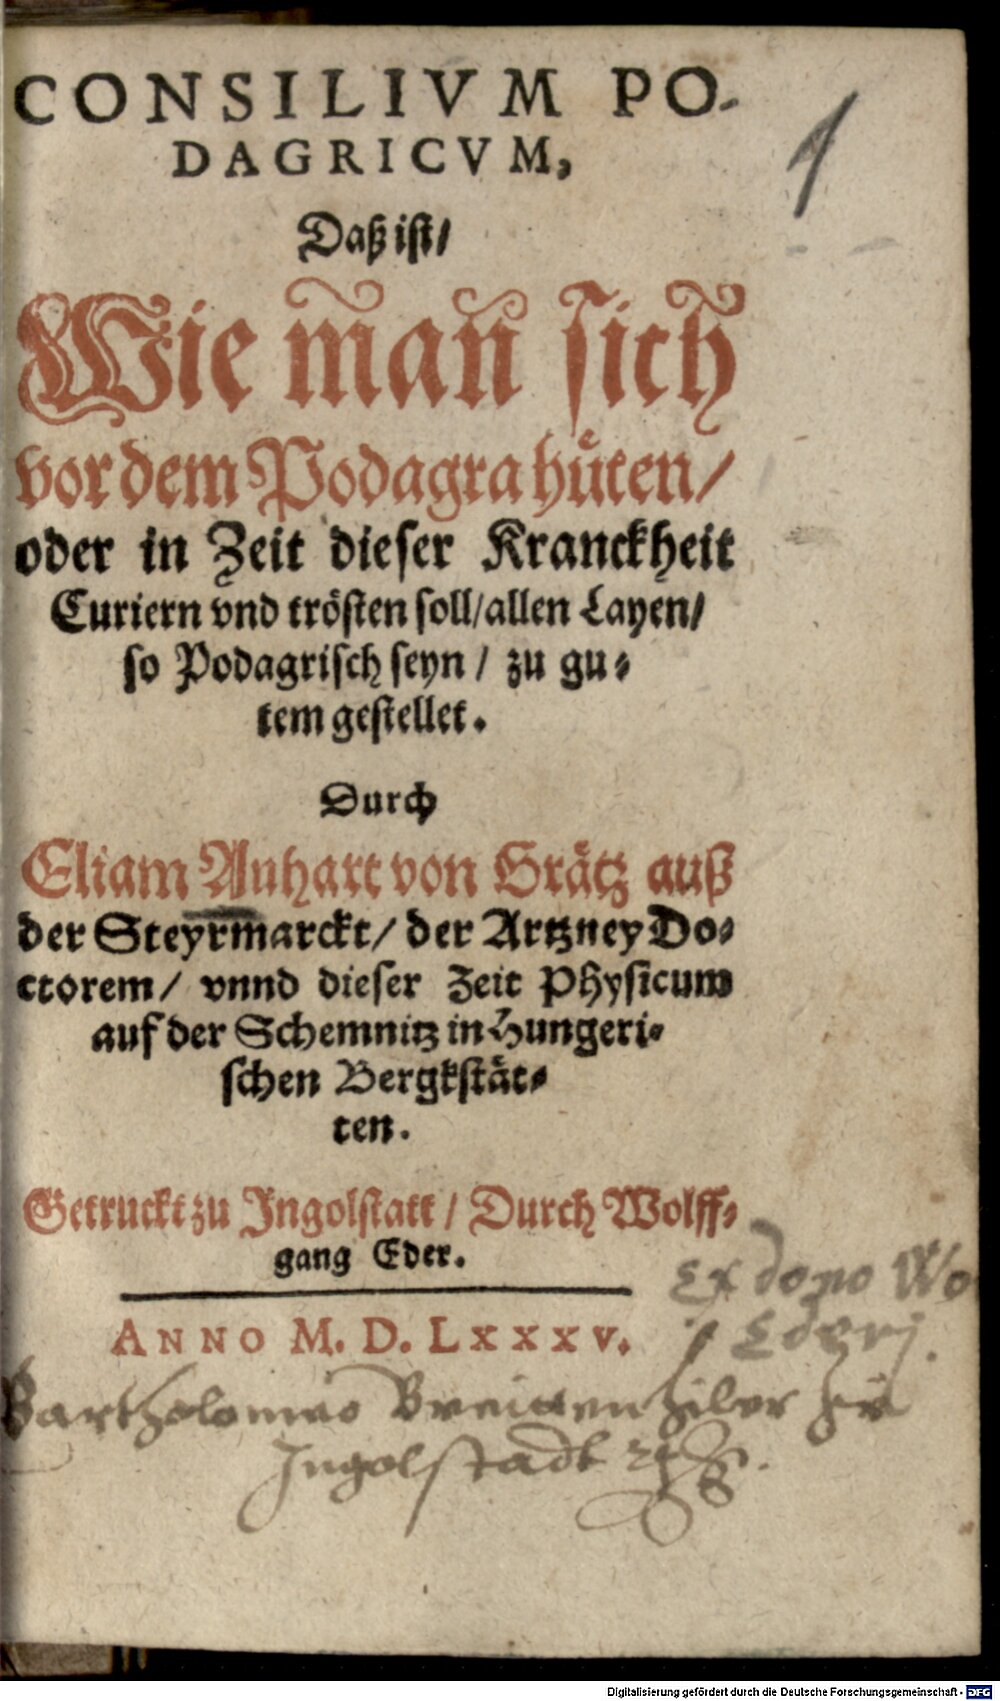 CONSILIVM PO-
DAGRICVM,
Daß ist/
Wie man̄ sich
vor dem Podagra hüten/
oder in Zeit dieser Kranckheit
Curiern vnd trösten soll/allen Layen/
so Podagrisch seyn / zu gu-
tem gestellet.
Durch
Eliam Anhart von Grätz auß
der Steyrmarckt/ der Artzney Do-
ctorem/ vnnd dieser Zeit Physicum
auf der Schemnitz in Hungeri-
schen Bergkstät-
ten.
Getruckt zu Ingolstatt / Durch Wolff-
gang Eder.
Ex dono Wo
Ederj.
ANNO M. D. LXXXV.
Bartholomeo
Ingolstadt
Digitalisierung gefördert durch die Deutsche Forschungsgemeinschaft - DFG